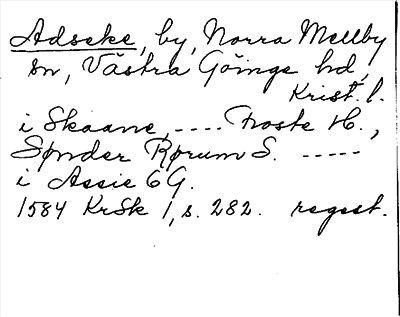 Adseke, by, Norra Mellby
sn, Västra Göinge hd,
Krist. l.
i Skaane, ---- Froste H.,
Sønder Rørum S. -----
i Assie 6 G.
1584 KrSk 1, s. 282. regest.